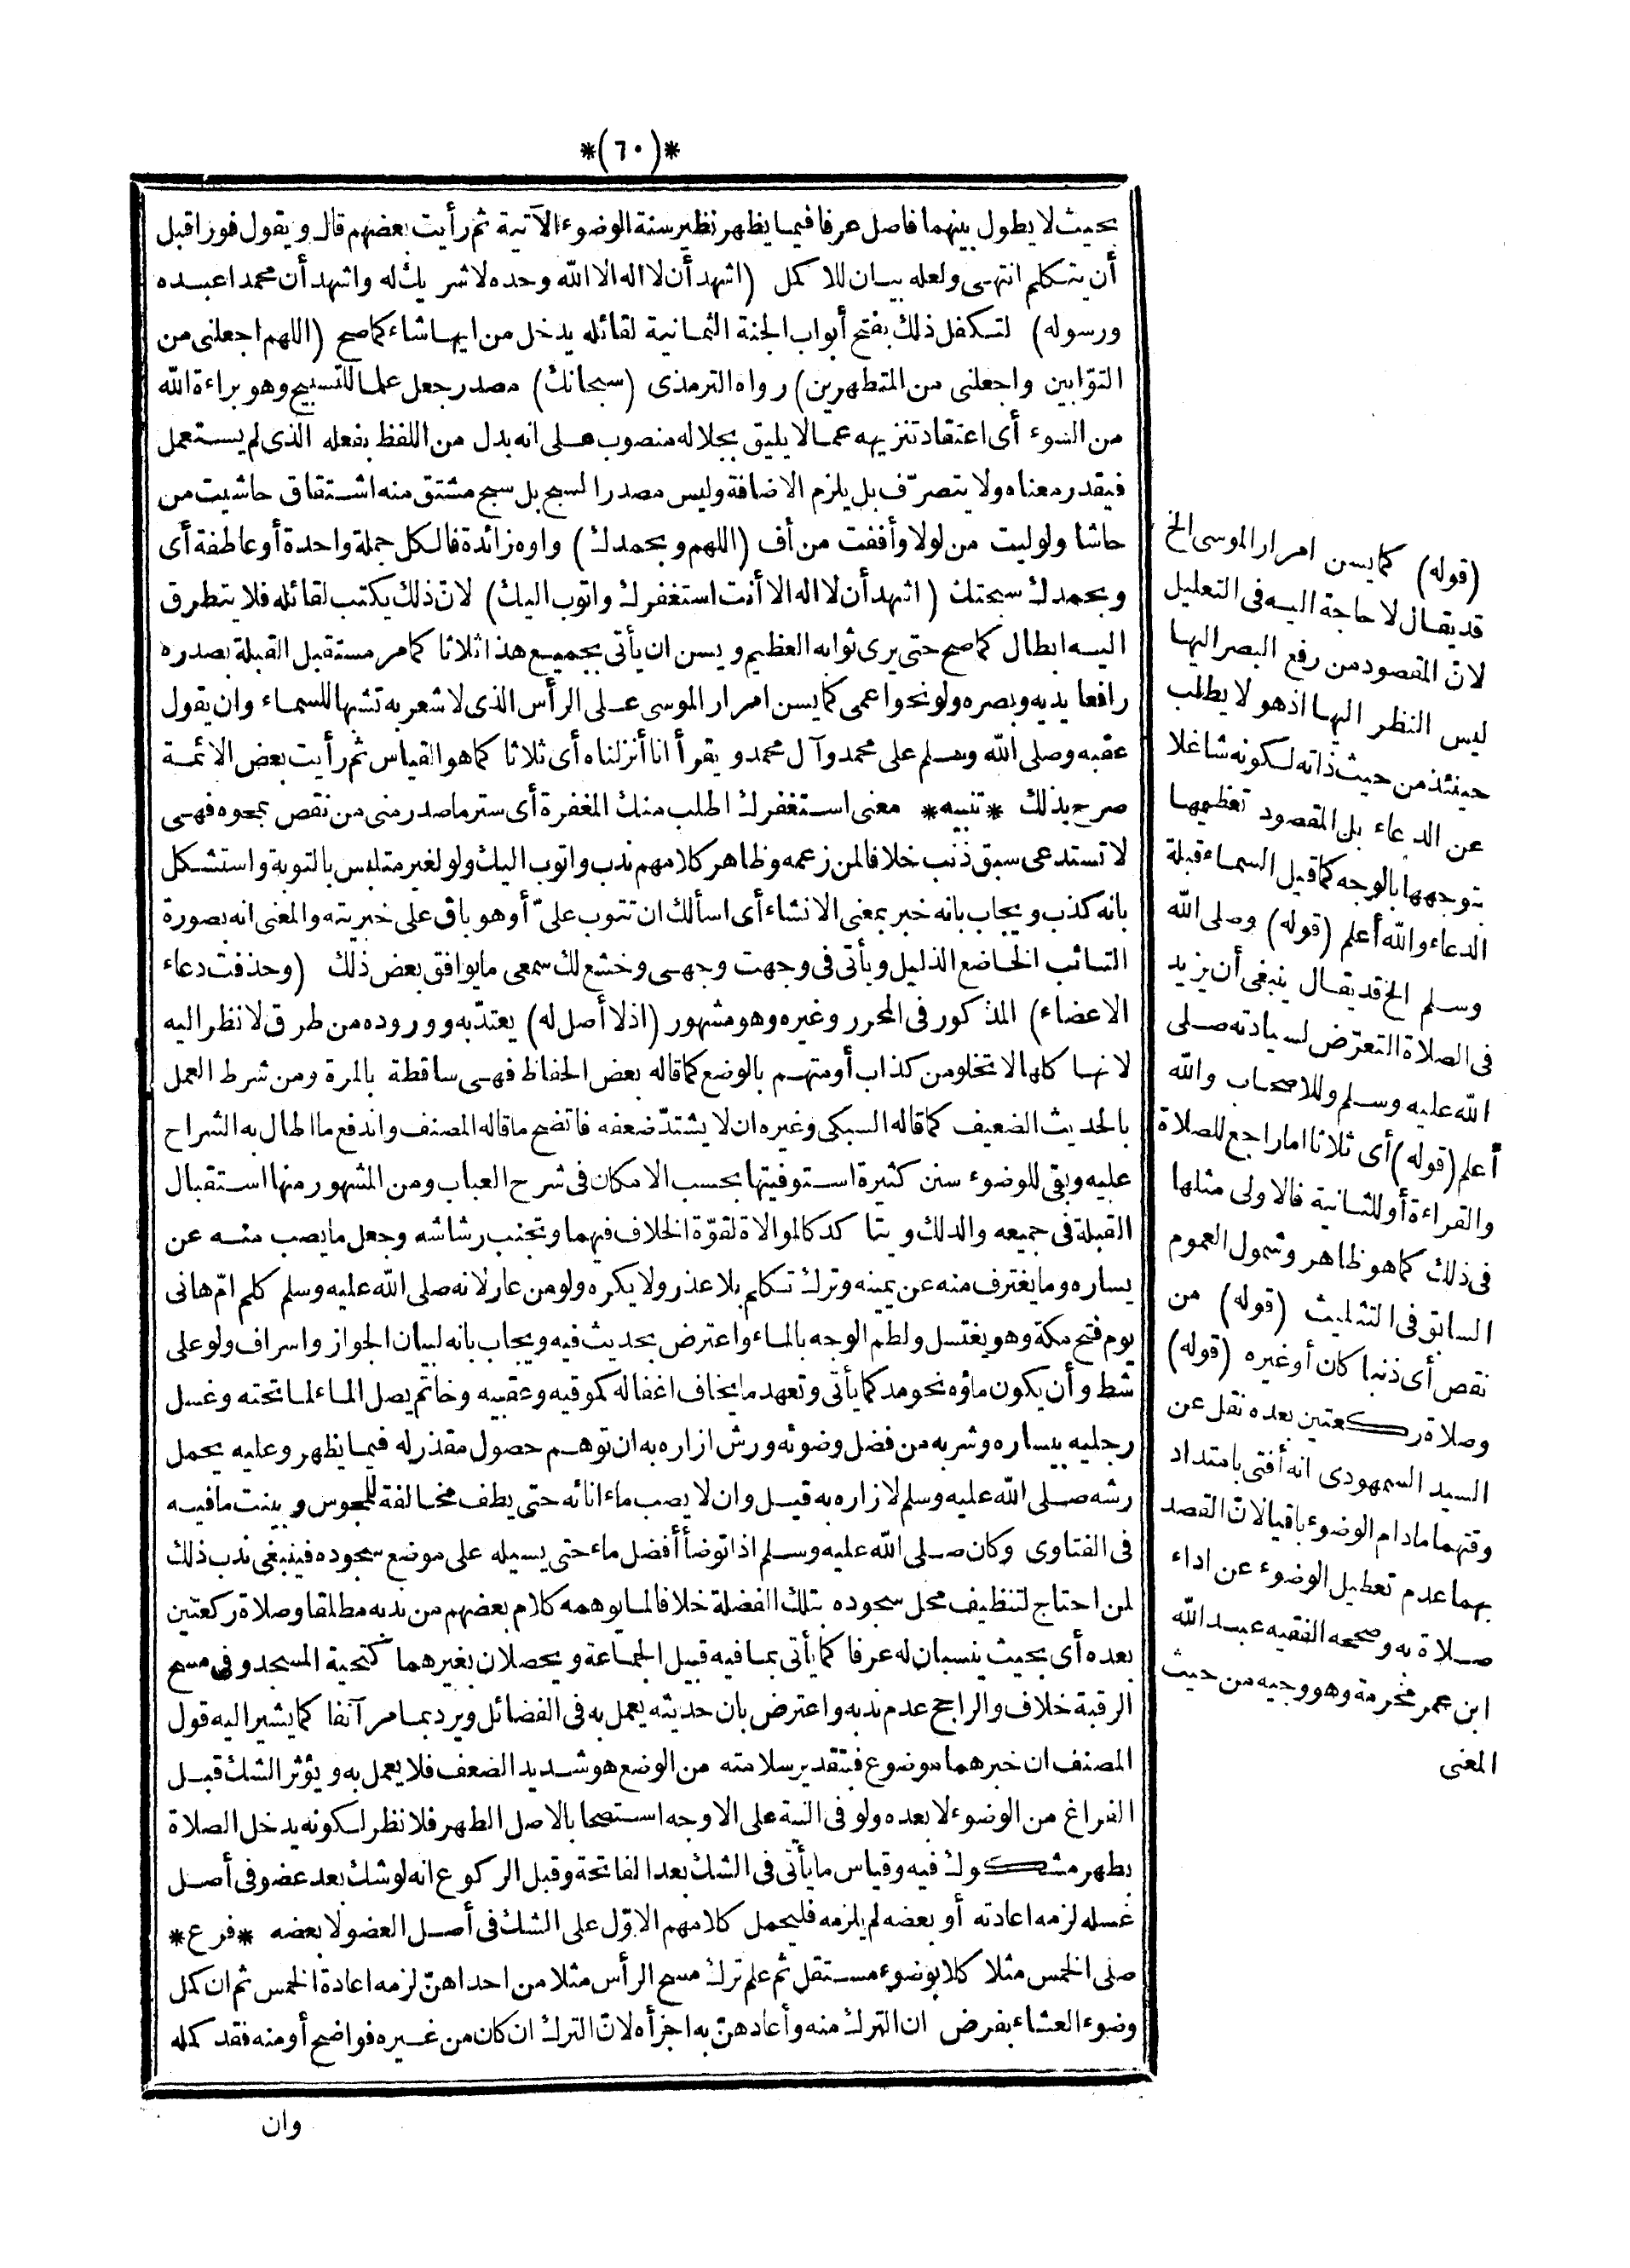 *(٦٠)*
بحيث لا يطول بينهما فاصل عرفا فيما يظهر نظير سنة الوضوء الآتية ثم رأيت بعضهم قال ويقول فورا قبل
أن يتكلم انتهى ولعله بيان للاكمل (اشهد أن لا اله الا الله وحده لا شريك له واشهد أن محمدا عبده
ورسوله) لتكفل ذلك بفتح أبواب الجنة الثمانية لقائله يدخل من ايها شاء كما صح (اللهم اجعلنى من
التوّابين واجعلنى من المتطهرين) رواه الترمذى (سبحانك) مصدر جعل علما للتسبيح وهو براءة الله
من السوء أى اعتقاد تنزيهه عما لا يليق بجلاله منصوب على انه بدل من اللفظ بفعله الذى لم يستعمل
فيقدر معناه ولا يتصرّف بل يلزم الاضافة وليس مصدرا لسبح بل سبح مشتق منه اشتقاق حاشيت من
حاشا ولوليت من لولا وأففت من أف (اللهم وبحمدك) واوه زائدة فالكل جملة واحدة أو عاطفة أى
وبحمدك سبحتك (اشهد أن لا اله الا أنت استغفرك واتوب اليك) لانّ ذلك يكتب لقائله فلا يتطرق
اليه ابطال كما صح حتى يرى ثوابه العظيم ويسن ان يأتى بجميع هذا ثلاثا كما مر مستقبل القبلة بصدره
رافعا يديه وبصره ولو نحو اعمى كما يسن امرار الموسى على الرأس الذى لا شعر به تشبها للسماء وان يقول
عقبه وصلى الله وسلم على محمد وآل محمد ويقرأ انا أنزلناه أى ثلاثا كما هو القياس ثم رأيت بعض الائمة
صرح بذلك *تنبيه* معنى استغفرك اطلب منك المغفرة أى ستر ما صدر منى من نقص بمحوه فهى
لا تستدعى سبق ذنب خلافا لمن زعمه وظاهر كلامهم ندب واتوب اليك ولو لغير متلبس بالتوبة واستشكل
بانه كذب ويجاب بانه خبر بمعنى الانشاء أى اسألك ان تتوب علىّ أو هو باق على خبريته والمعنى انه بصورة
التائب الخاضع الذليل ويأتى فى وجهت وجهى وخشع لك سمعى ما يوافق بعض ذلك (وحذفت دعاء
الاعضاء) المذكور فى المحرر وغيره وهو مشهور (اذ لا أصل له) يعتدّ به ووروده من طرق لا نظر اليه
لانها كلها لا تخلو من كذاب أو متهم بالوضع كما قاله بعض الحفاظ فهى ساقطة بالمرة ومن شرط العمل
بالحديث الضعيف كما قاله السبكى وغيره ان لا يشتدّ ضعفه فاتضح ما قاله المصنف واندفع ما اطال به الشراح
عليه وبقى للوضوء سنن كثيرة استوفيتها بحسب الامكان فى شرح العباب ومن المشهور منها استقبال
القبلة فى جميعه والدلك ويتأكد كالموالاة لقوّة الخلاف فيهما وتجنب رشاشه وجعل ما يصب منه عن
يساره وما يغترف منه عن يمينه وترك تكلم بلا عذر ولا يكره ولو من عار لانه صلى الله عليه وسلم كلم امّ هانى
يوم فتح مكة وهو يغتسل ولطم الوجه بالماء واعترض بحديث فيه ويجاب بانه لبيان الجواز واسراف ولو على
شط وأن يكون ماؤه نحو مد كما يأتى وتعهد ما يخاف اغفاله كموقيه وعقبيه وخاتم يصل الماء لما تحته وغسل
رجليه بيساره وشربه من فضل وضوئه ورش ازاره به ان توهم حصول مقذر له فيما يظهر وعليه يحمل
رشه صلى الله عليه وسلم لازاره به قيل وان لا يصب ماء انائه حتى يطف مخالفة للمجوس وبينت ما فيه
فى الفتاوى وكان صلى الله عليه وسلم اذا توضأ أفضل ماء حتى يسيله على موضع سجوده فينبغى ندب ذلك
لمن احتاج لتنظيف محل سجوده بتلك الفضلة خلافا لما يوهمه كلام بعضهم من ندبه مطلقا وصلاة ركعتين
بعده أى بحيث ينسبان له عرفا كما يأتى بما فيه قبيل الجماعة ويحصلان بغيرهما كتحية المسجد وفى مسح
الرقبة خلاف والراجح عدم ندبه واعترض بان حديثه يعمل به فى الفضائل ويرد بما مر آنفا كما يشير اليه قول
المصنف ان خبرهما موضوع فبتقدير سلامته من الوضع هو شديد الضعف فلا يعمل به ويؤثر الشك قبل
الفراغ من الوضوء لا بعده ولو فى النية على الاوجه استصحابا لاصل الطهر فلا نظر لكونه يدخل الصلاة
بطهر مشكوك فيه وقياس ما يأتى فى الشك بعد الفاتحة وقبل الركوع انه لو شك بعد عضو فى أصل
غسله لزمه اعادته أو بعضه لم يلزمه فليحمل كلامهم الاوّل على الشك فى أصل العضو لا بعضه *فرع*
صلى الخمس مثلا كلا بوضوء مستقل ثم علم ترك مسح الرأس مثلا من احداهنّ لزمه اعادة الخمس ثم ان كمل
وضوء العشاء بفرض ان الترك منه وأعادهنّ به اجزأه لانّ الترك ان كان من غيره فواضح أو منه فقد كمله
وان
(قوله) كما يسن امرار الموسى الخ
قد يقال لا حاجة اليه فى التعليل
لانّ المقصود من رفع البصر اليها
ليس النظر اليها اذ هو لا يطلب
حينئذ من حيث ذاته لكونه شاغلا
عن الدعاء بل المقصود تعظيمها
بتوجهها بالوجه كما قيل السماء قبلة
الدعاء والله أعلم (قوله) وصلى الله
وسلم الخ قد يقال ينبغى أن يزيد
فى الصلاة التعرّض لسيادته صلى
الله عليه وسلم وللاصحاب والله
أعلم (قوله) أى ثلاثا اما راجع للصلاة
والقراءة أو للثانية فالاولى مثلها
فى ذلك كما هو ظاهر وشمول العموم
السابق فى التثليث (قوله) من
نقص أى ذنبا كان أو غيره (قوله)
وصلاة ركعتين بعده نقل عن
السيد السمهودى انه أفتى بامتداد
وقتهما ما دام الوضوء باقيا لانّ القصد
بهما عدم تعطيل الوضوء عن اداء
صلاة به وصححه الفقيه عبد الله
ابن عمر مخرمة وهو وجيه من حيث
المعنى